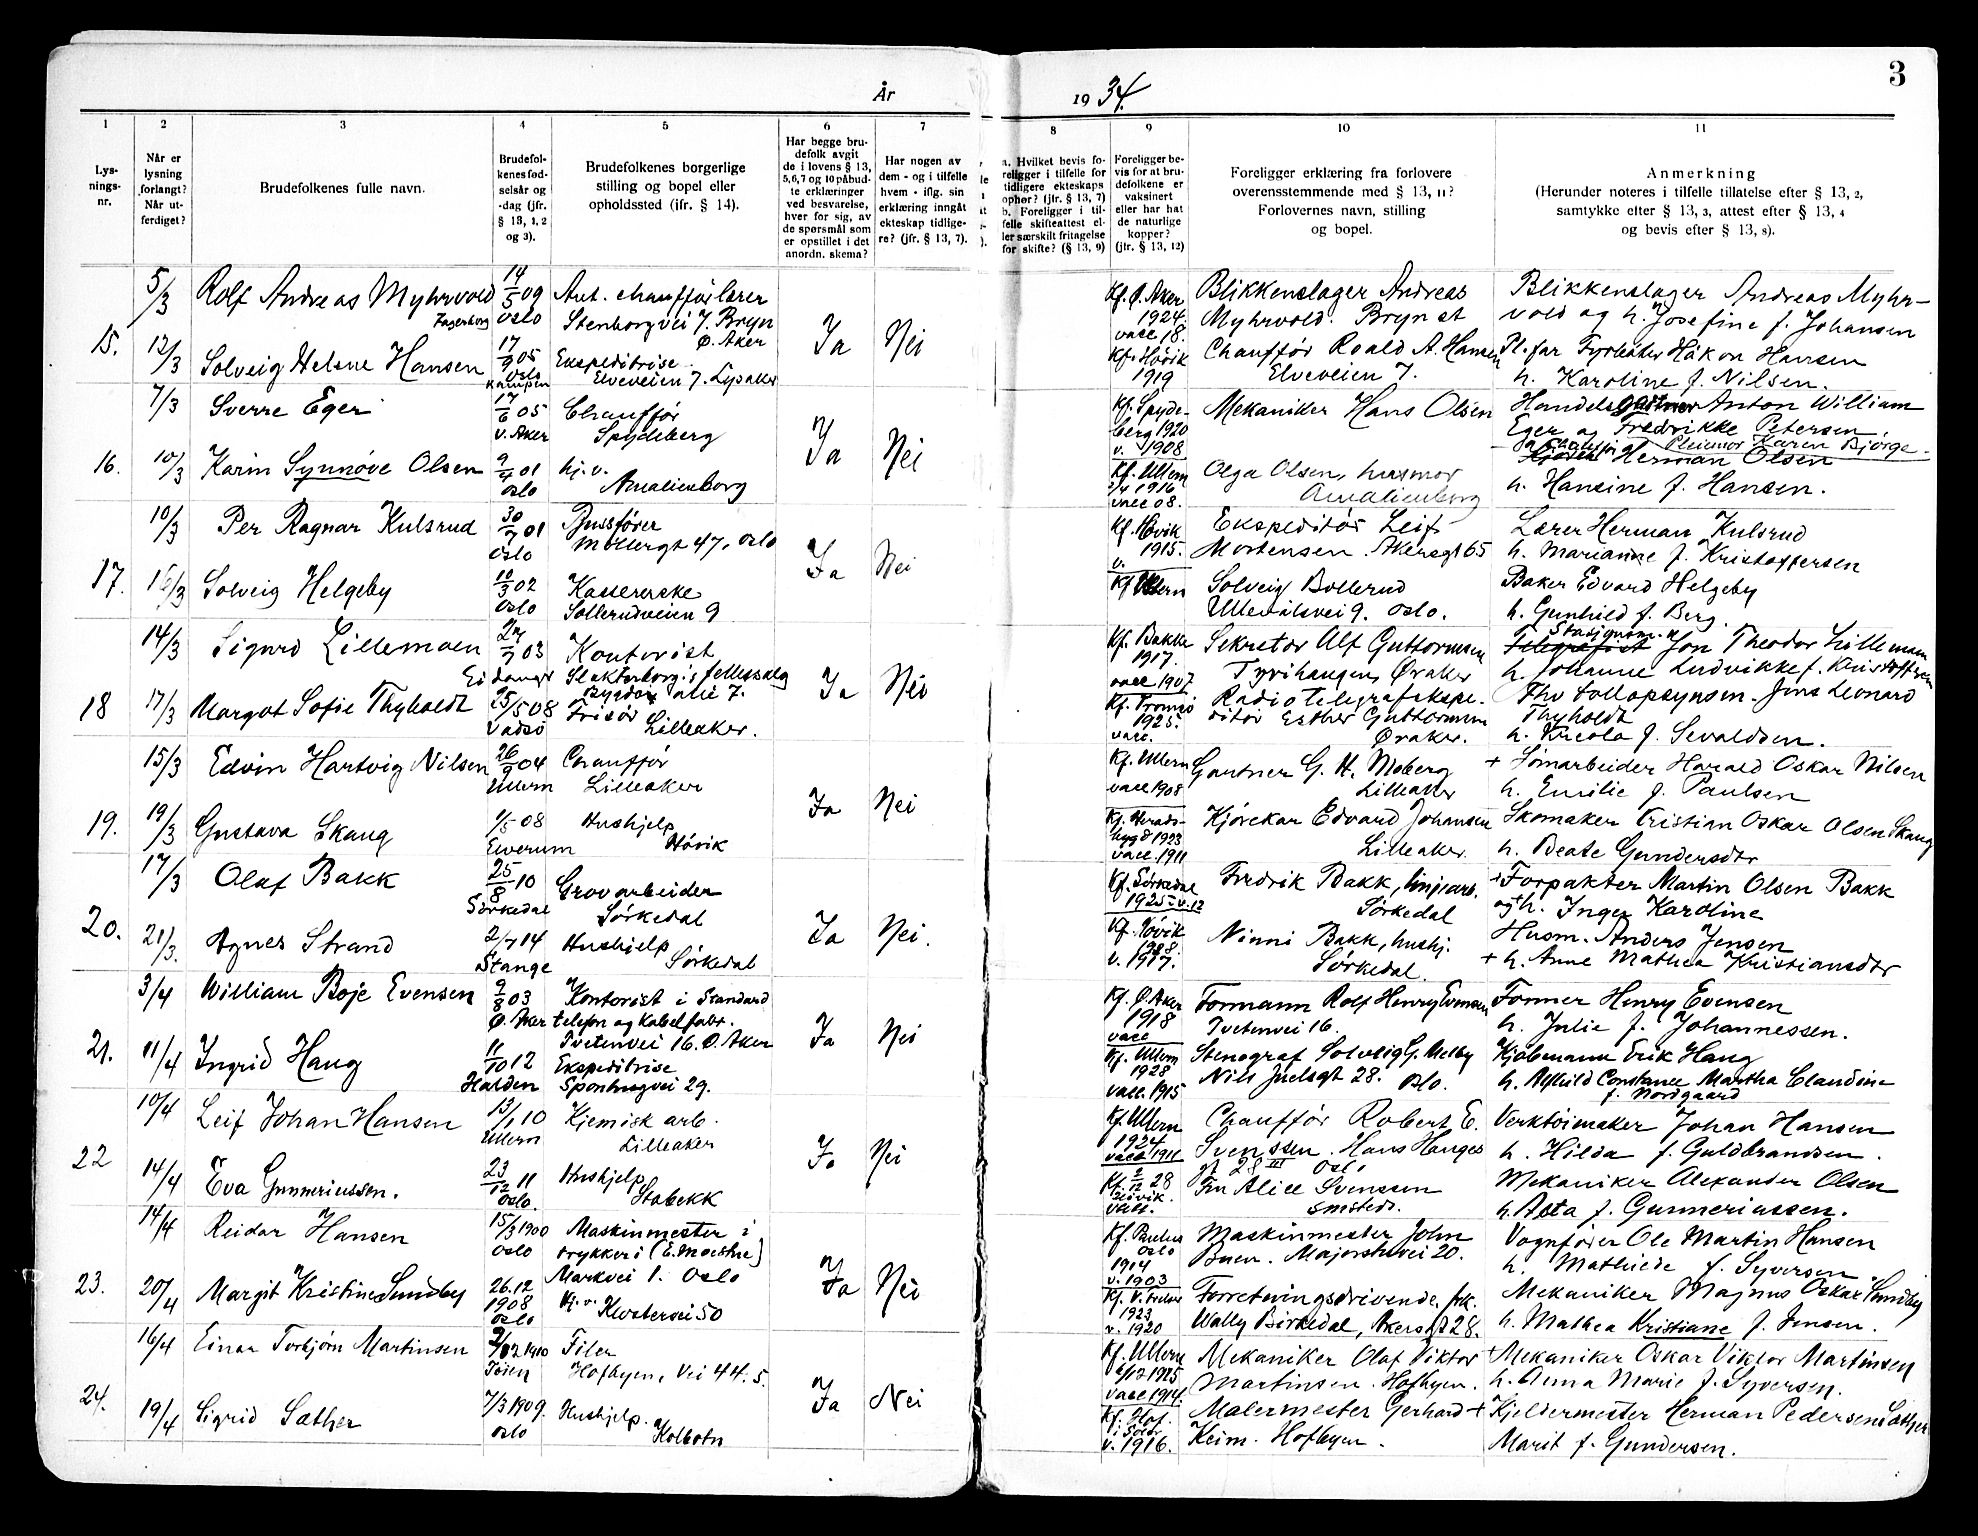 3
År
19 34.
1
2
3
4
5
6
7
8
9
10
11
Lys-
nings-
nr.
Når er
lysning
forlangt?
Når ut-
ferdiget?
Brudefolkenes fulle navn.
Brudefol-
kenes fød-
selsår og
-dag (jfr.
§ 13, 1, 2
og 3).
Brudefolkenes borgerlige
stilling og bopel eller
opholdssted (ifr. § 14).
Har begge bru-
defolk avgit
de i lovens § 13,
5,6,7 og 10 påbud-
te erklæringer
ved besvarelse,
hver for sig, av
de spørsmål som
er opstillet i det
anordn. skema?
Har nogen av
dem - og i tilfelle
hvem - iflg. sin
erklæring inngått
ekteskap tidlige-
re? (jfr. § 13, 7).
a. Hvilket bevis fo-
religger i tilfelle for
tidligere ekteskaps
ophør? (jfr. § 13, 7)
b. Foreligger i til-
felle skifteattest el-
ler særskilt fritagelse
for skifte? (§ 13, 9)
Foreligger be-
vis for at bru-
defolkene er
vaksinert
eller har hat
de naturlige
kopper?
(jfr. § 13, 12)
Foreligger erklæring fra forlovere
overensstemmende med § 13, 11?
Forlovernes navn, stilling
og bopel.
Anmerkning
(Herunder noteres i tilfelle tillatelse efter § 13, 2,
samtykke efter § 13, 3, attest efter § 13, 4
og bevis efter § 13, 8).
15.
5/3
Rolf Andreas Myhrvold
Fagerborg
14/5 09
Oslo
Aut. chaufförlærer
Stenborgvei 7. Bryn
Ø. Aker
Ja
Nei
Kf. Ø. Aker
1924.
vacc 18.
Blikkenslager Andreas
Myhrvold. Bryn st
Blikkenslager Andreas Myhr-
vold og h. Josefine f. Johansen
12/3
Solveig Helene Hansen
17/9 05
Oslo
Kampen
Ekspeditrise
Elveveien 7. Lysaker
Kf. Høvik
1919
Chauffør Roald A. Hansen
Elveveien 7.
Pl. far Fyrbøter Håkon Hansen
h. Karoline f. Nilsen.
16.
7/3
Sverre Eger
17/6 05
V. Aker
Chauffør
Spydeberg
Ja
Nei
Kf. Spyde-
berg 1920
v. 1908
Mekaniker Hans Olsen
Handelsgartner Anton William
Eger og Fredrikke Petersen
10/3
Karin Synnøve Olsen
9/9 01
Oslo
hj. v.
Amalienborg
Kf. Ullern
2/4 1916
vacc 08.
Olga Olsen, husmor
Amalienborg
Pleiemor Karen Bjørge.
Herman Olsen
h. Hansine f. Hansen.
17.
10/3
Per Ragnar Kulsrud
30/7 01
Oslo
Bussfører
Møllergt 47, Oslo
Ja
Nei
Kf. Høvik
1915.
v.
Ekspeditør Leif
Mortensen. Akersgt 65
Lærer Herman Kulsrud
h. Marianne f. Kristoffersen
16/3
Solveig Helgeby
10/3 02
Oslo
Kassererske
Sollerudveien 9
Kf. Ullern
Solveig Bollerud
Ullevålsvei 9. Oslo.
Baker Edvard Helgeby
h. Gunhild f. Berg.
18
14/3
Sigurd Lillemoen
27/7 03
Eidanger
Kontorist
Slakterborg's fellessalg
Bygdøy alle 7.
Ja
Nei
Kf. Bakke
1917.
vacc 1907
Sekretær Alf Guttormsen
Tyrihaugen, Øraker
Stasjonsm.
Telegrafist Jon Theodor Lillemoen
h. Johanne Ludvikke f. Kristoffersen
17/3
Margot Sofie Thyholdt
25/5 08
Vadsø
Frisør
Lilleaker.
Kf. Tromsø
1925.
vacc.
Radiotelegrafekspe-
ditør Esther Guttormsen
Øraker.
Fhv Tollopsynsm. Jens Leonard
Thyholdt
h. Nicola f. Sevaldsen.
19.
15/3
Edvin Hartvig Nilsen
26/9 04
Ullern
Chauffør
Lilleaker
Ja
Nei
Kf. Ullern
vacc 1908
Gartner G. H. Moberg
Lilleaker
+ Tømarbeider Harald Oskar Nilsen
h. Emilie f. Paulsen
19/3
Gustava Skaug
1/5 08
Elverum
Hushjelp
Høvik
Kf. Herads-
bygd 1923
vacc. 1911
Kjørekar Edvard Johansen
Lilleaker
Skomaker Kristian Oskar Olsen Skaug
h. Beate Gundersdtr
20.
17/3
Olaf Bakk
25/8 10
Sørkedal
Grovarbeider
Sørkedal
Ja
Nei.
Kf. Sørkedal
1925 - v. 12
Fredrik Bakk, linjearb.
Sørkedal
+ Forpakter Martin Olsen Bakk
og + h. Inger Karoline
21/3.
Agnes Strand
2/7 14
Stange
Hushjelp
Sørkedal
Kf. Høvik
1928.
v. 1917.
Ninni Bakk, hushj.
Sørkedal
Husm. Anders Jensen
+ h. Anne Mathea Kristiansdtr
21.
3/4
William Boje Evensen
9/8 03
Ø. Aker
Kontorist i Standard
telefon og Kabelfabr.
Tvetenvei 16. Ø. Aker
Ja
Nei
Kf. Ø. Aker
1918
vacc
Formann Rolf Henry Evensen
Tvetenvei 16.
Former Henry Evensen
h. Julie f. Johannessen.
11/4
Ingrid Haug
11/10 12
Halden
Ekspeditrise
Sponhugvei 29.
Kf. Ullern
1928
vacc. 1915
Stenograf Solveig G. Melby
Nils Juelsgt 28. Oslo.
Kjøbmann Erik Haug
h. Alfhild Constance Martha Claudine
f. Nordgaard
22
10/4
Leif Johan Hansen
13/1 10
Ullern
Kjemisk arb.
Lilleaker
Ja
Nei
Kf. Ullern
1924
vacc 1911
Chauffør Robert E.
Svenssen. Hans Hauges
gt 28 III Oslo
Verktøimaker Johan Hansen
h. Hilda f. Guldbrandsen.
14/4
Eva Gunneriussen.
23/12 11
Oslo.
Hushjelp
Stabekk
Kf. 2/12 28
Høvik.
vacc.
Fru Alice Svenssen
smsteds.
Mekaniker Alexander Olsen
h. Asta f. Gunneriussen.
23.
14/4
Reidar Hansen
15/3 1900
Oslo
Maskinmester i
trykkeri (E. Moestue)
Markvei 1. Oslo
Ja
Nei
Kf. Paulus
Oslo
1914
v. 1903
Maskinmester John
Buen. Majorstuvei 20.
Vognfører Ole Martin Hansen
h. Mathilde f. Syversen
20/4
Margit Kristine Sundby
26.12
1908
Oslo
Hj. v.
Klostervei 50
Kf. V. Frelser
1923
v. 1920
Forretningsdrivende, frk.
Wally Birkedal, Akersgt 28.
Mekaniker Magnus Oskar Sundby
h. Mathea Kristiane f. Jensen.
24.
16/4
Einar Torbjørn Martinsen
2/12 1910
Tøien
Filer
Hofbyen, Vei 44. 5.
Ja
Nei
Kf. Ullern
6/12 1925
vacc 1914.
Mekaniker Olaf Viktor
Martinsen. Hofbyen.
+ Mekaniker Oskar Viktor Martinsen
h. Anna Marie f. Syversen.
19/4
Sigrid Sæther
7/3 1909.
Oslo
Hushjelp.
Kolbotn
Kf. Hof
i Solør
v. 1916.
Malermester Gerhard
Keim. Hofbyen.
+ Kjeldermester Herman Pedersen Sæther
Marit f. Gundersen.